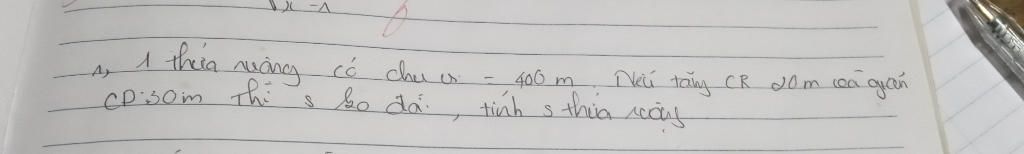 x - 1
1, 1 thửa ruộng có chu vi = 400 m. Nếu tăng CR 20m và giảm
CD: 30m thì s ko đổi, tính s thửa ruộng